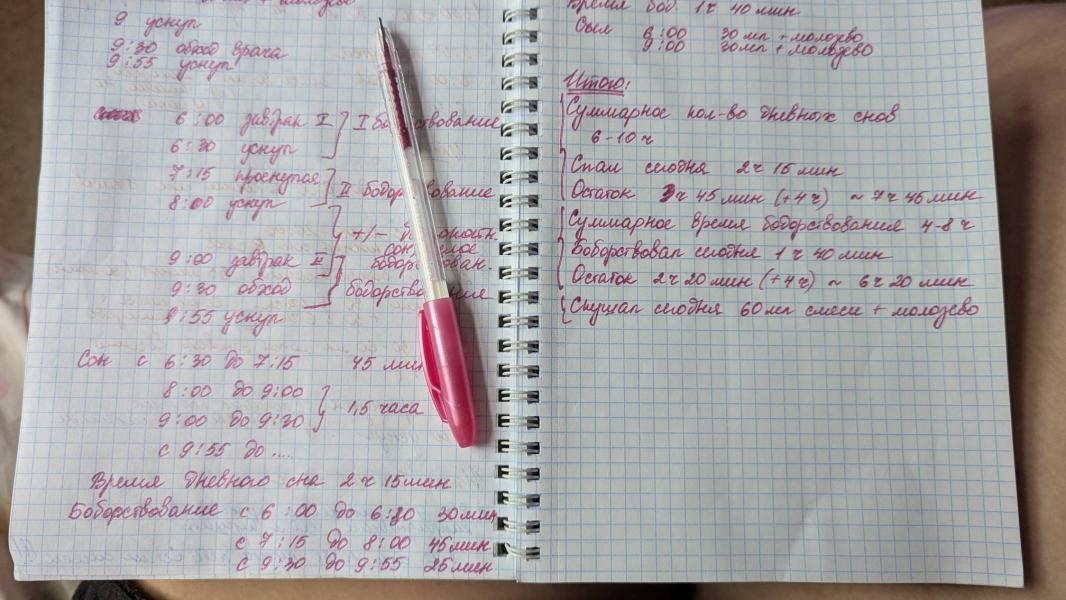 9 уснул
9:30 обход врача
9:55 уснул
6:00 завтрак I } I бо ствование
6:30 уснул
7:15 проснулся } II бодор ование
8:00 уснул
+/-
сон
9:00 завтрак II } бодорс ован.
9:30 обход бодорство ия
9:55 уснул
Сон с 6:30 до 7:15 45 мин
8:00 до 9:00
9:00 до 9:30 } 1,5 часа
с 9:55 до .....
Время дневного сна 2ч 15мин
Бодорствование с 6:00 до 6:30 30мин
с 7:15 до 8:00 45мин
с 9:30 до 9:55 25мин
Время бод. 1ч 40мин
6:00 30мл + молозево
9:00 30мл + молозево
Итого:
Суммарное кол-во дневных снов
6-10ч
Спал сегодня 2ч 15мин
Остаток 3ч 45мин (+4ч) ~ 7ч 45мин
Суммарное время бодорствования 4-8ч
Бодорствовал сегодня 1ч 40мин
Остаток 2ч 20мин (+4ч) ~ 6ч 20мин
Скушал сегодня 60мл смеси + молозево